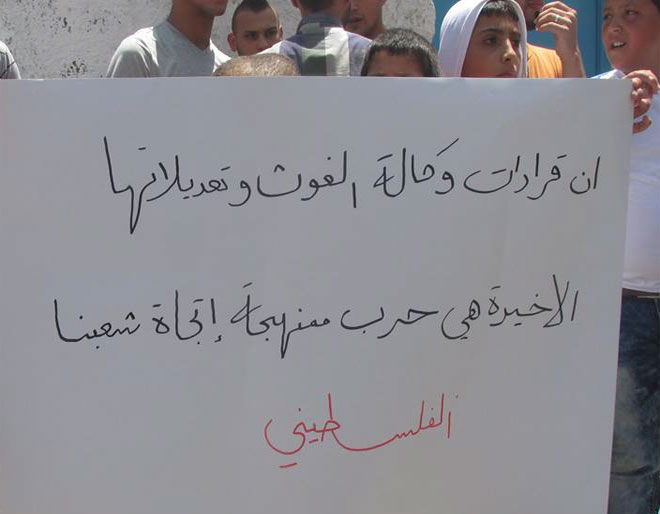 ان قرارات وكالة الغوث وتعديلاتها
الاخيرة هي حرب ممنهجة إتجاة شعبنا
الفلسطيني